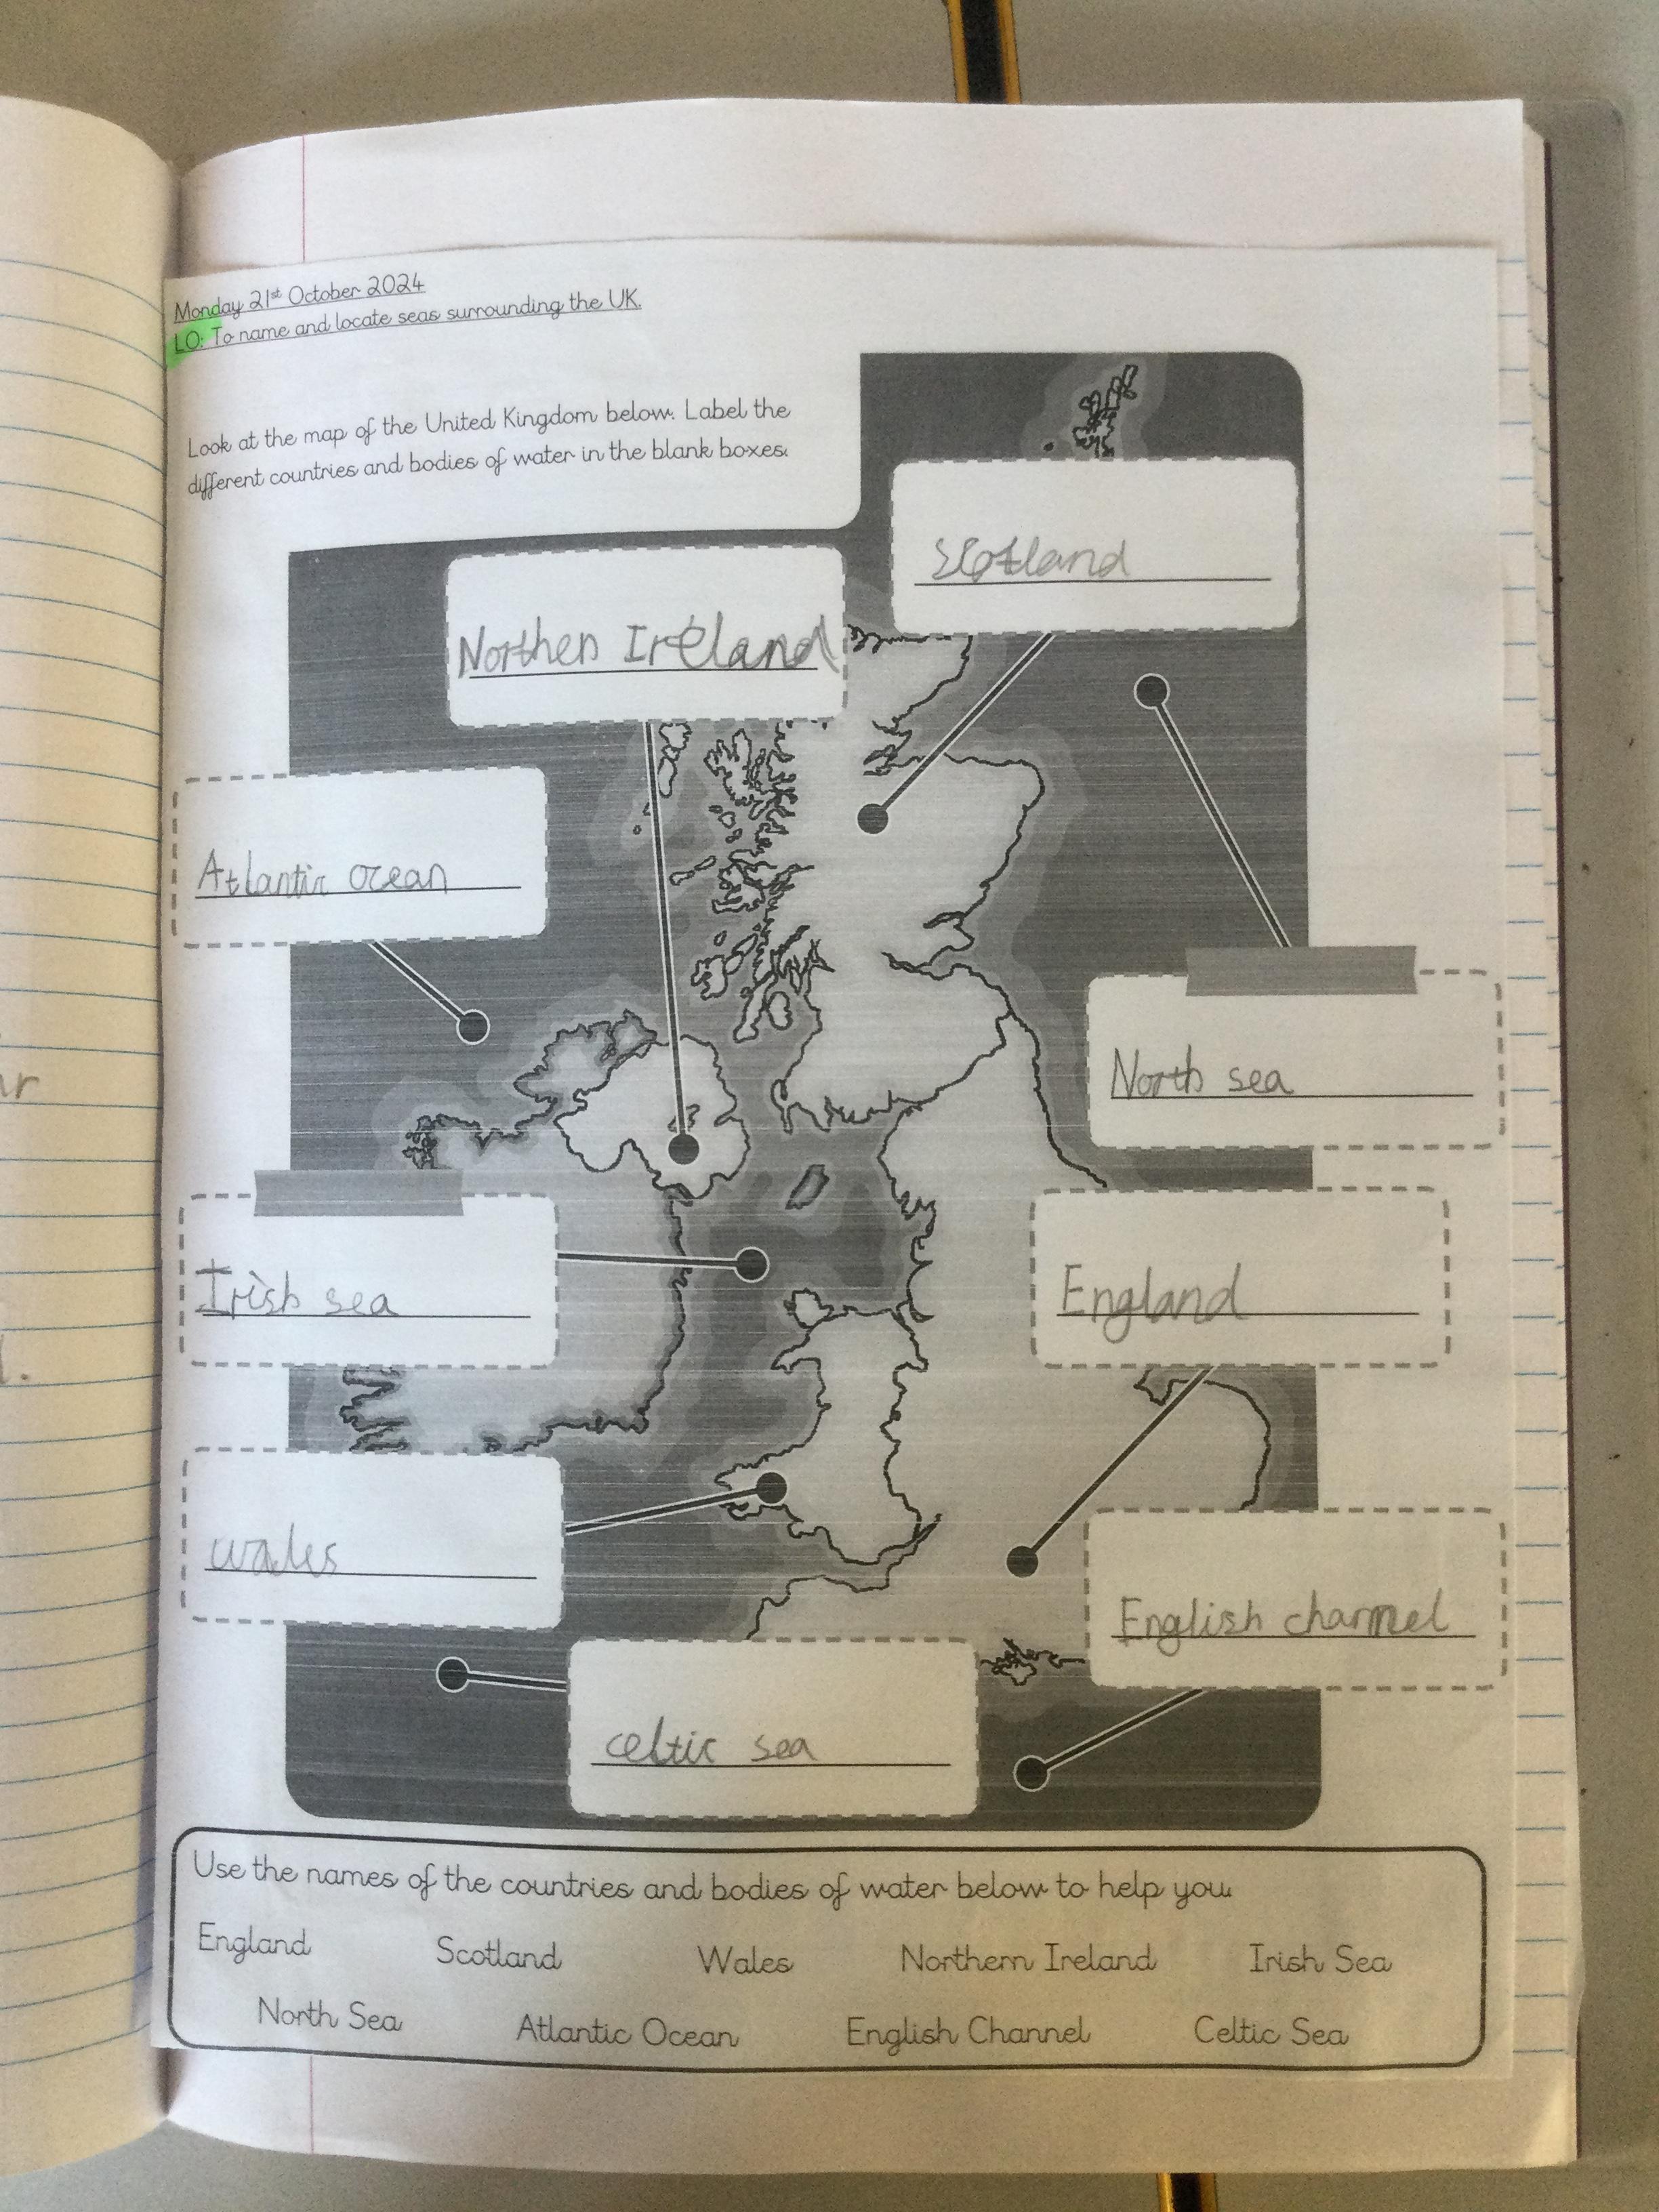 Monday 21st October 2024
LO: To name and locate seas surrounding the UK.
Look at the map of the United Kingdom below. Label the
different countries and bodies of water in the blank boxes.
Scotland
Northen Ireland
Atlantic ocean
North sea
Irish sea
England
wales
English channel
celtic sea
Use the names of the countries and bodies of water below to help you.
England Scotland Wales Northern Ireland Irish Sea
North Sea Atlantic Ocean English Channel Celtic Sea